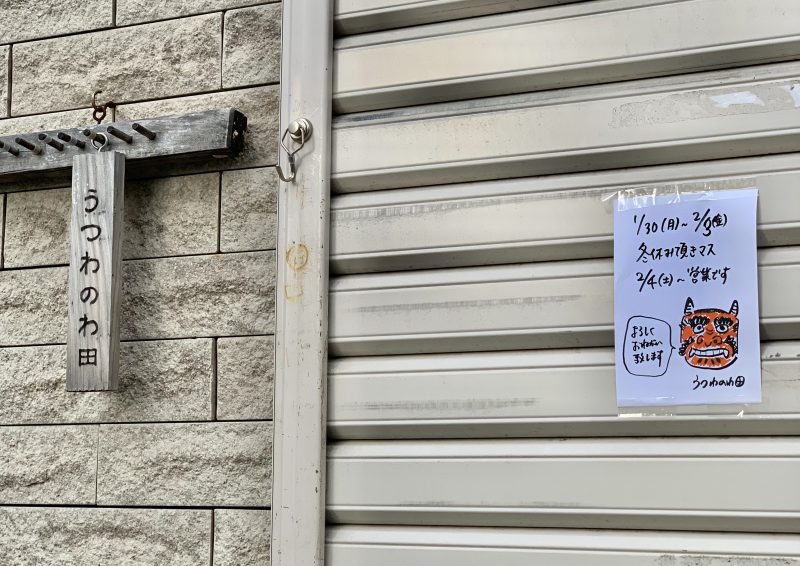 うつわのわ田
1/30(月)~2/3(金)
冬休み頂きマス
2/4(土)~営業です
よろしく
おねがい
致します
うつわのわ田